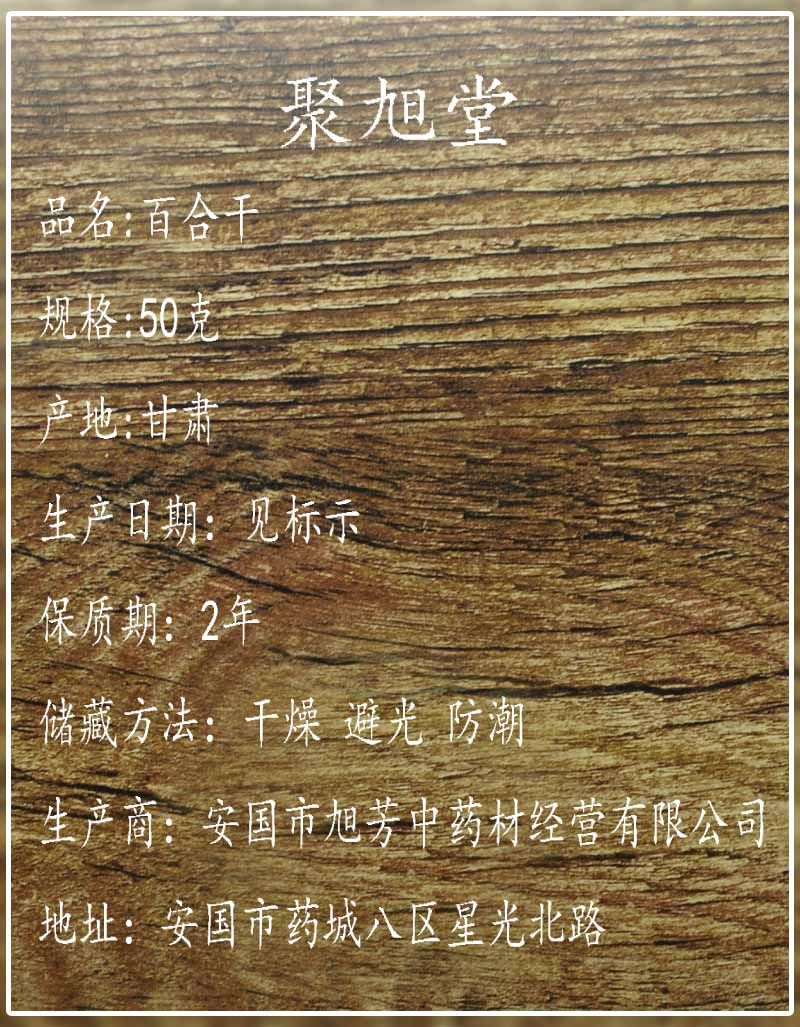 聚旭堂
品名:百合干
规格:50克
产地:甘肃
生产日期：见标示
保质期：2年
储藏方法：干燥 避光 防潮
生产商：安国市旭芳中药材经营有限公司
地址：安国市药城八区星光北路